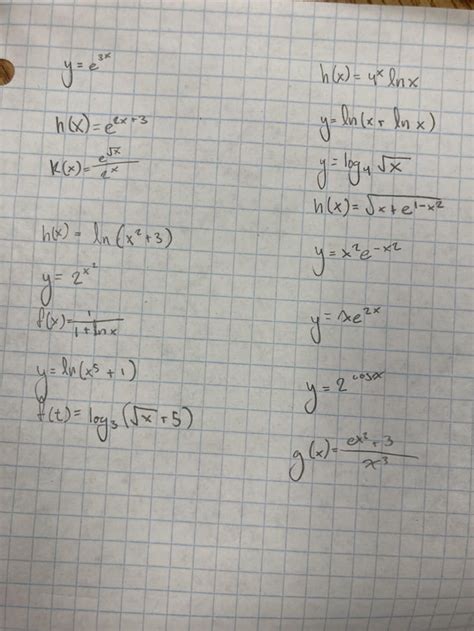 y = e^{3x}
h(x) = e^{2x+3}
k(x) = e^{√x} / e^x
h(x) = ln(x² + 3)
y = 2^{x²}
f(x) = 1 / 1 + ln x
y = ln(x⁵ + 1)
f(t) = log₃(√x + 5)
h(x) = 4^x ln x
y = ln(x + ln x)
y = log₄ √x
h(x) = √x + e^{1-x²}
y = x² e^{-x2}
y = xe^{2x}
y = 2^{cosx}
g(x) = ex² + 3 / x³